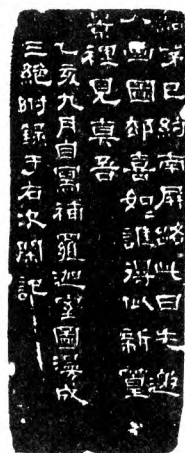 已約南屏路此日先
圖却喜如誰得似新篁
裡見真吾
乙亥九月自寫補羅迦室圖漫成
三絕附録于右次閑記